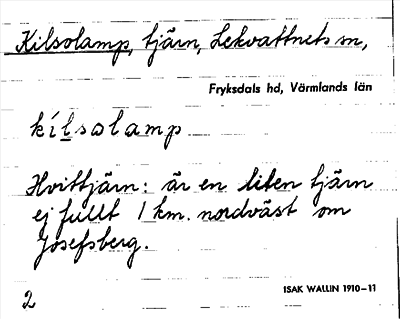 Kilsolamp, tjärn, Lekvattnets sn,
Fryksdals hd, Värmlands län
kílsolamp
Hvittjärn: är en liten tjärn
ej fullt 1 km. nordväst om
Josefsberg.
ISAK WALLIN 1910–11
2